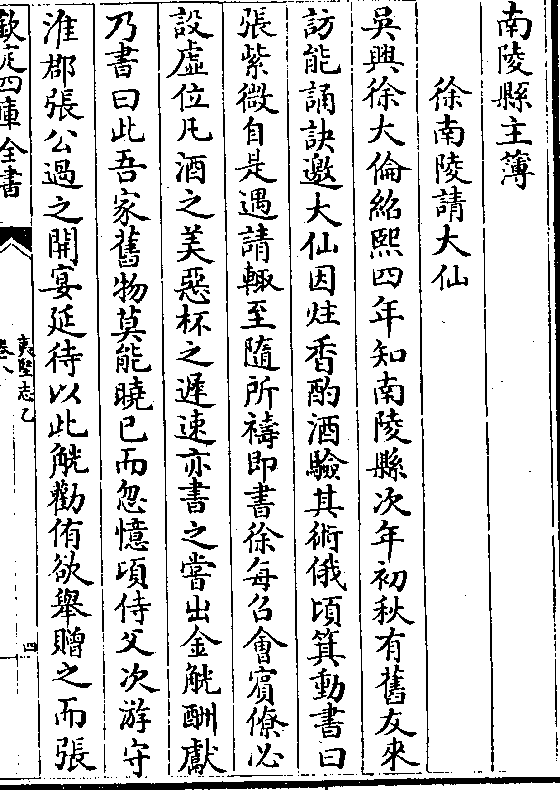 南陵縣主簿
徐南陵請大仙
吳興徐大倫紹熙四年知南陵縣次年初秋有舊友來
訪能誦訣邀大仙因炷香酌酒驗其術俄頃箕動書曰
張紫微自是遇請輙至隨所禱即書徐每召會賓僚必
設虛位凡酒之美惡杯之遲速亦書之嘗出金觥酬獻
乃書曰此吾家舊物莫能曉已而忽憶頃侍父次游守
淮郡張公過之開宴延待以此觥勸侑欲舉贈之而張
欽定四庫全書
夷堅志乙
卷八
四